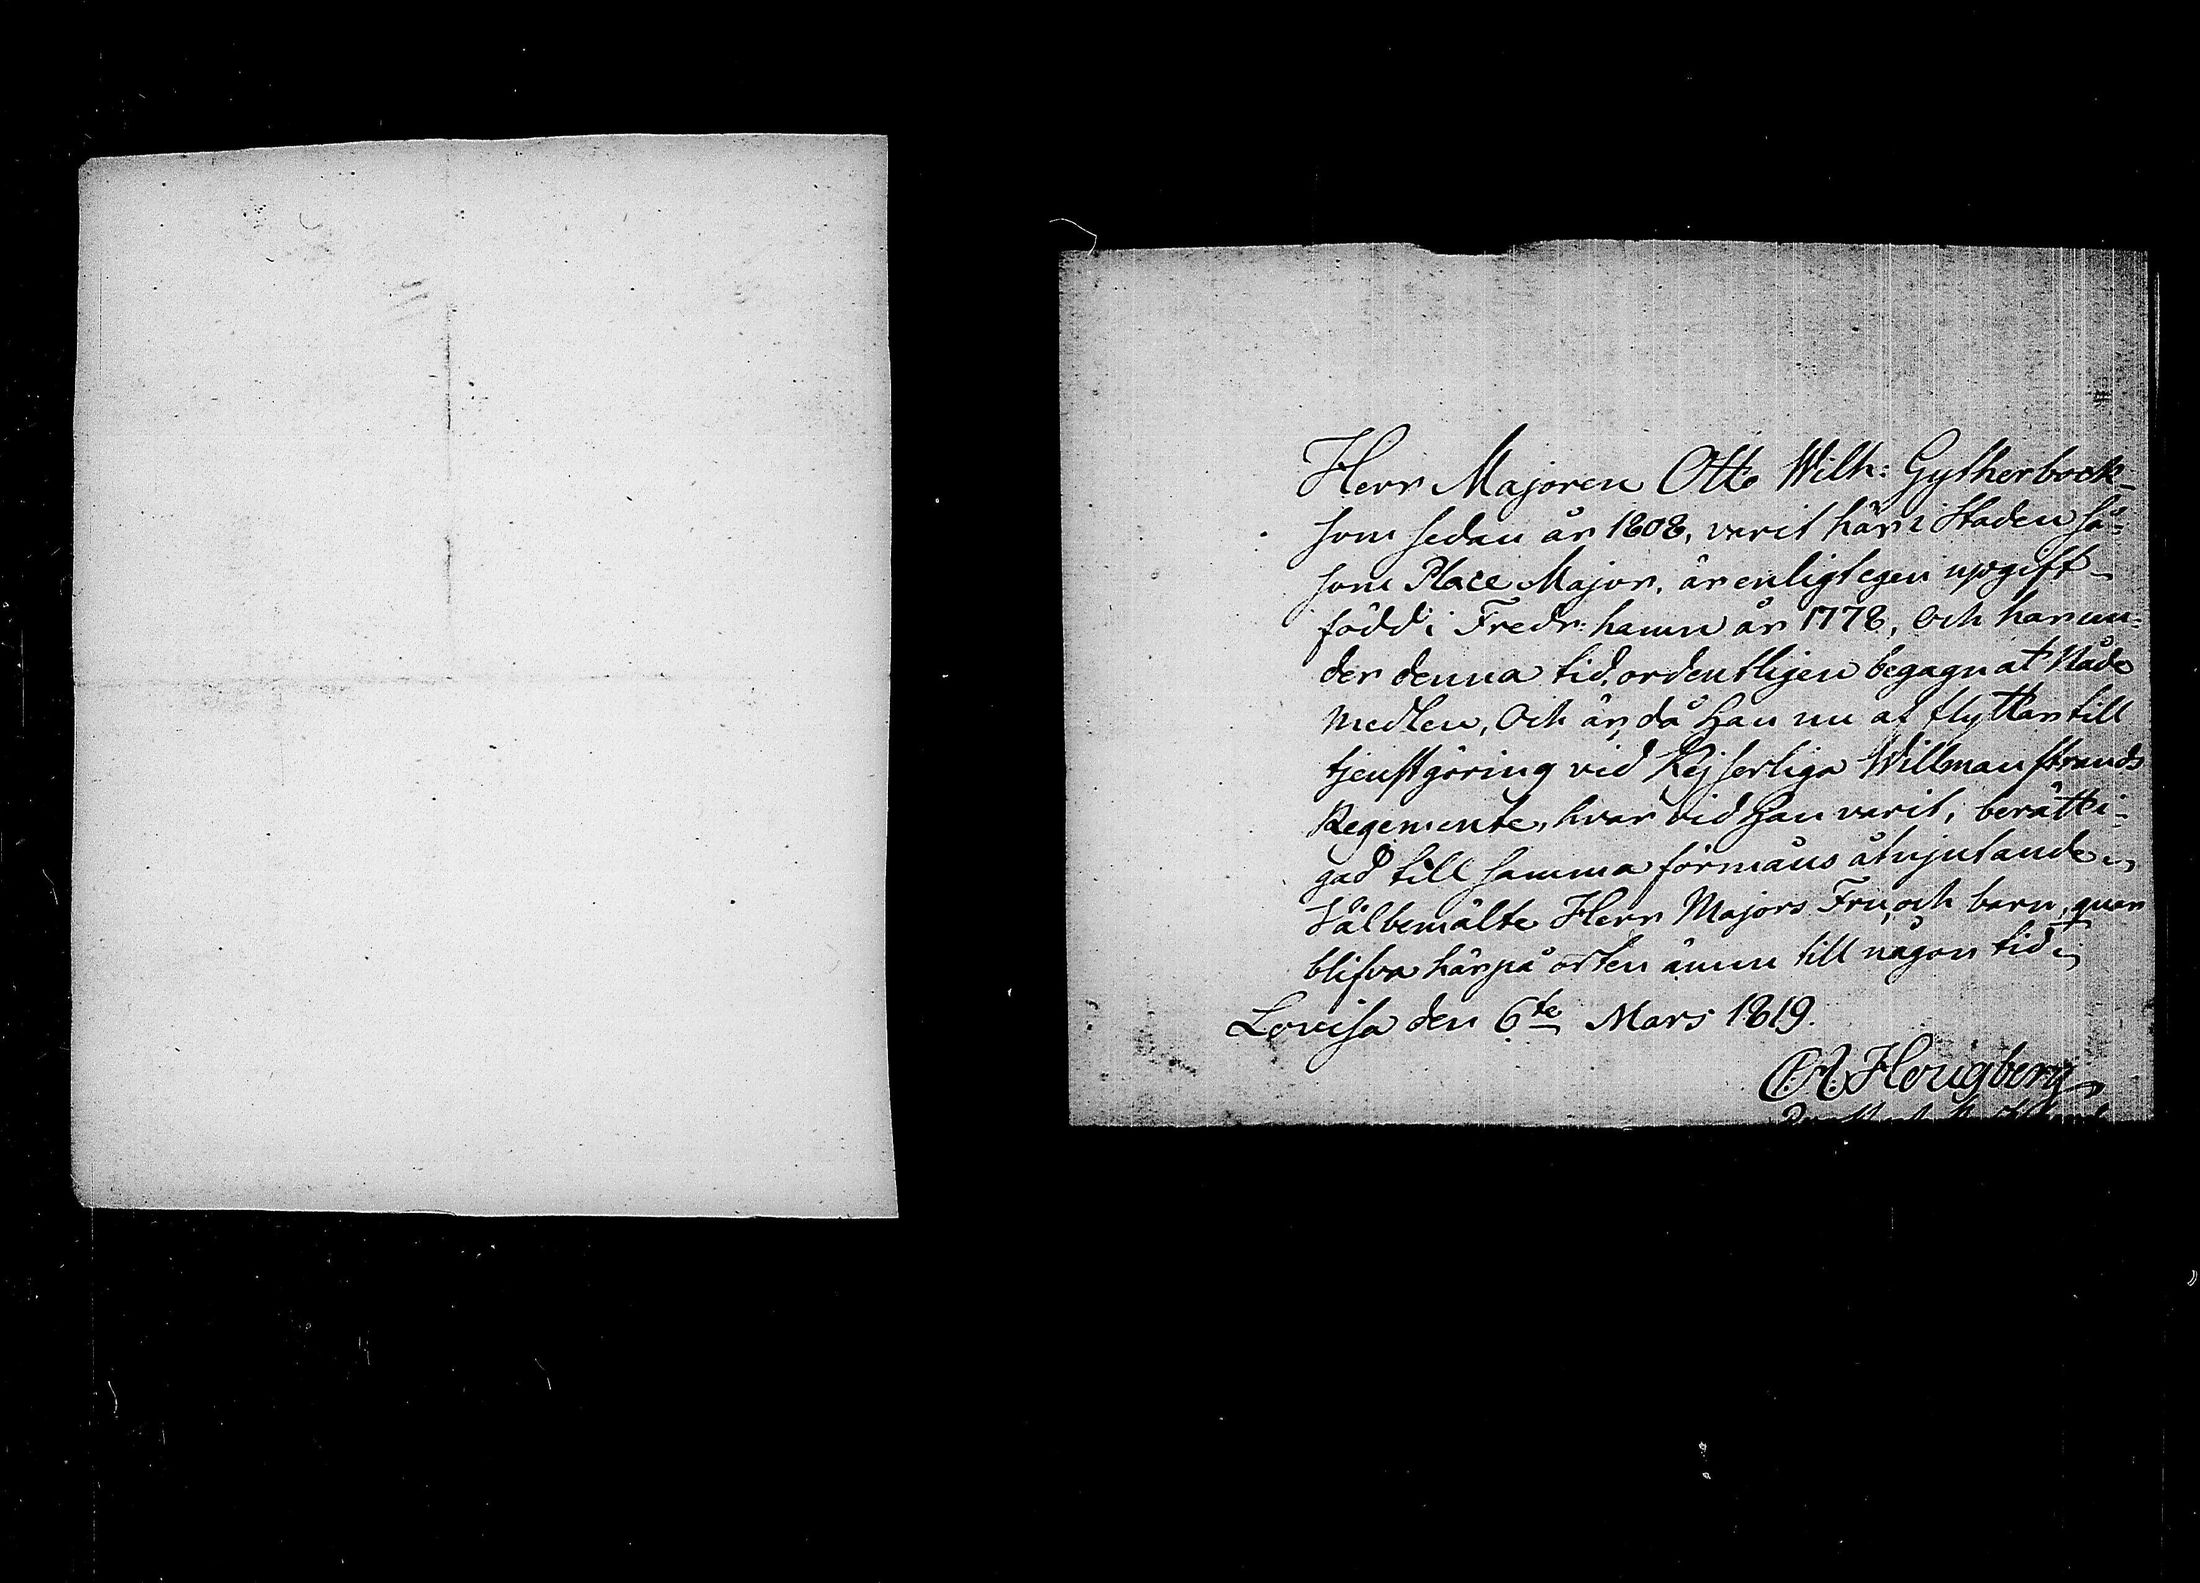 Herr Majoren Otto Wilh: Gytherbock
som sedan år 1808, varit här i Staden så=
som Place Major, är enligt egen upgift
född i Fredr: hamn år 1778, Och har un=
der denna tid ordentligen begagnat Nåde
medlen, Och är, då Han nu af flyttar till
tjenstgöring vid Kejserliga Willmanstrands
Regemente, hvar vid Han varit, berätti=
gad till samma förmåns åtnjutande.
Välbemälte Herr Majors Fru, och barn, quar
blifva här på orten ännu till någon tid.
Lovisa den 6te Mars 1819.